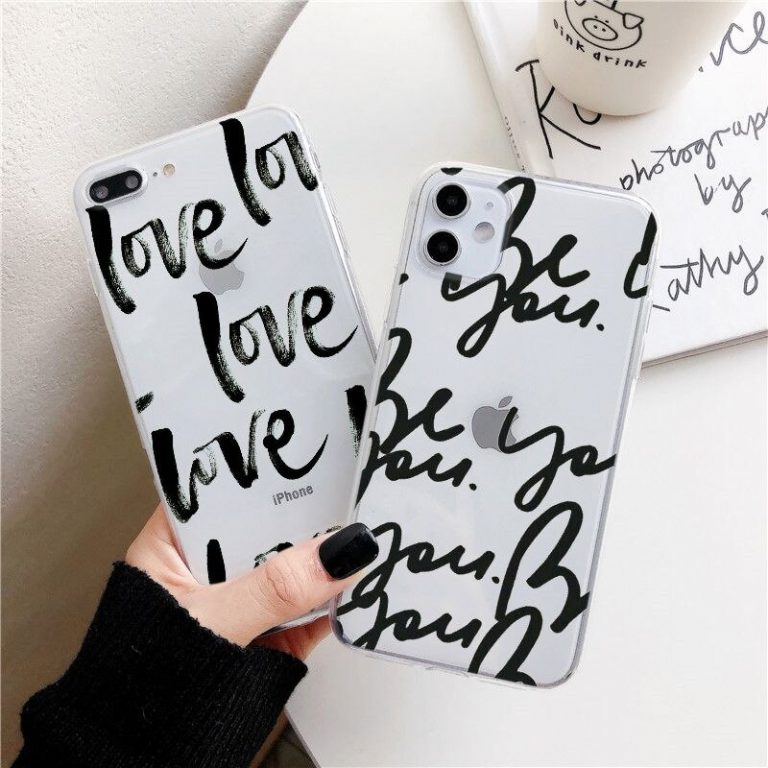 love
love
love
love
iPhone
Be
you.
Be
you.
yo
you.
B
you.
B
oink drink
photograp
by
Kathy